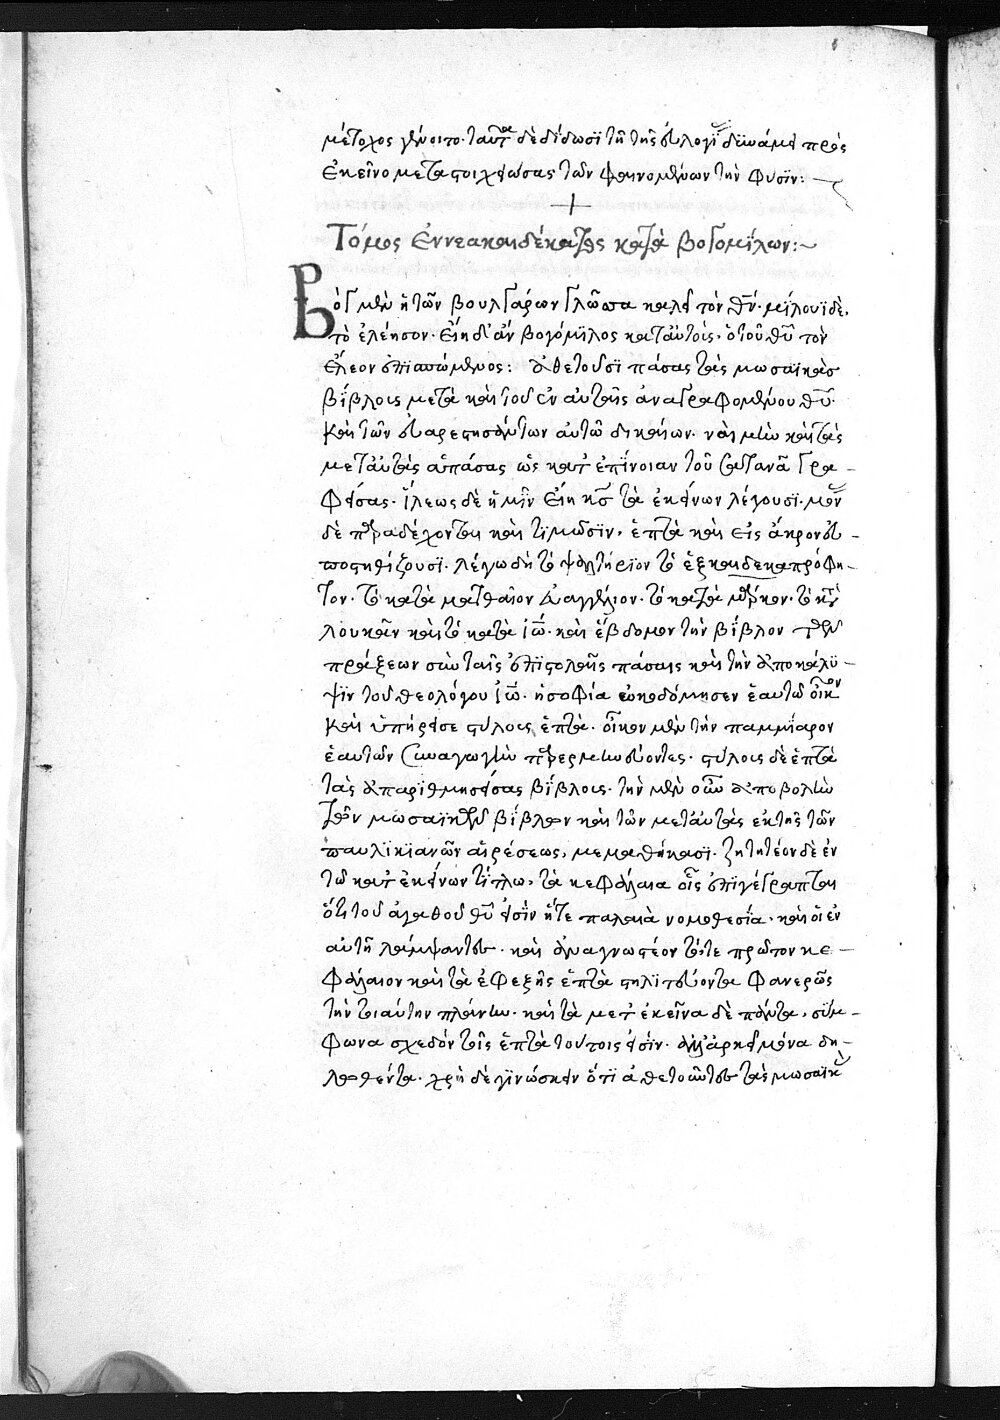 μέτοχος γένοιτο· ταῦτα δὲ δίδωσϊ τῆ τῆς εὐλογίας δυνάμει πρὸς
ἐκεῖνο μεταστοιχειώσας τῶν φαινομένων τὴν φύσϊν:
Τόμος ἐννεακαιδέκατος κατὰ βογομίλων:~
Βὸγ μὲν ἡ τῶν βουλγάρων γλῶσσα καλεῖ τὸν θν̄· μίλουϊ δὲ,
τὸ ἐλέησον· εἴη δ' ἂν βογόμιλος κατ' αὐτοὺς, ὁ τοῦ θῦ τὸν
ἔλεον ἐπισπώμενος: ἀθετοῦσϊ πάσας τὰς μωσαϊκὰς
βίβλους μετὰ καὶ τοῦ ἐν αὐταῖς ἀναγραφομένου θῦ·
καὶ τῶν εὐαρεστησάντων αὐτῶ δικαίων· ναὶ μὴν καὶ τὰς
μετ' αὐτὰς ἁπάσας ὡς κατ' ἐπίνοιαν τοῦ σατανᾶ γρα-
φείσας· ἵλεως δὲ ἡμῖν εἴη κς̄ τὰ ἐκείνων λέγουσι· μόνας
δὲ παραδέχονται καὶ τιμῶσϊν, ἑπτὰ καὶ εἰς ἄκρον ἀ-
ποστηθίζουσϊ· λέγω δὴ τὸ ψαλτήριον τὸ ἑξκαιδεκαπρόφη-
τον· τὸ κατὰ ματθαῖον εὐαγγέλιον· τὸ κατὰ μάρκον· τὸ κατὰ
λουκᾶν καὶ τὸ κατὰ ἰω̄· καὶ ἑβδόμον τὴν βίβλον τῶν
πράξεων σὺν ταῖς ἐπϊστολαῖς πάσαις καὶ τὴν ἀποκάλυ-
ψϊν τοῦ θεολόγου ἰω̄· ἡ σοφία ὠκοδόμησεν ἑαυτῶ οἶκον
καὶ ὑπήρεισε στύλους ἑπτὰ· οἶκον μὲν τὴν παμμίαρον
ἑαυτῶν συναγωγὴν παρερμηνεύοντες· στύλους δὲ ἑπτὰ
τὰς ἀπαριθμησείσας βίβλους· τὴν μὲν οὖν ἀποβολὴν
τῶν μωσαϊκῶν βίβλων καὶ τῶν μετ' αὐτὰς ἐκ τῆς τῶν
παυλικιανῶν αἱρέσεως, μεμαθήκασϊ· ζητητέον δὲ ἐν
τῶ κατ' ἐκείνων τίτλω, τὰ κεφάλαια οἷς ἐπϊγέγραπται
ὅτι τοῦ ἀγαθοῦ θῦ ἐσϊν ἥτε παλαιὰ νομοθεσία, καὶ οἱ ἐν
αὐτῆ λάμψαντες· καὶ ἀναγνωστέον τό, τε πρῶτον κε-
φάλαιον καὶ τὰ ἐφεξῆς ἑπτὰ στηλϊτεύοντα φανερῶς
τὴν τοιαύτην πλάνην· καὶ τὰ μετ' ἐκεῖνα δὲ πάντα, σύμ-
φωνα σχεδὸν τοῖς ἑπτὰ τούτοις εἰσϊν· δη-
λωθέντα· χρὴ δὲ γϊνώσκειν ὅτϊ ἀθετοῦντες τὰς μωσαϊκὰς